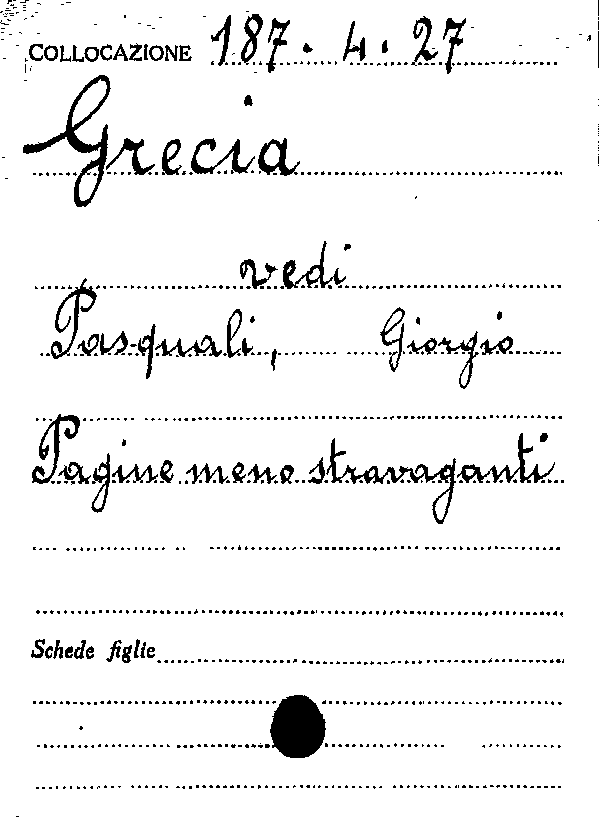 COLLOCAZIONE 187.4.27
Grecia
vedi
Pasquali, Giorgio
Pagine meno stravaganti
Schede figlie